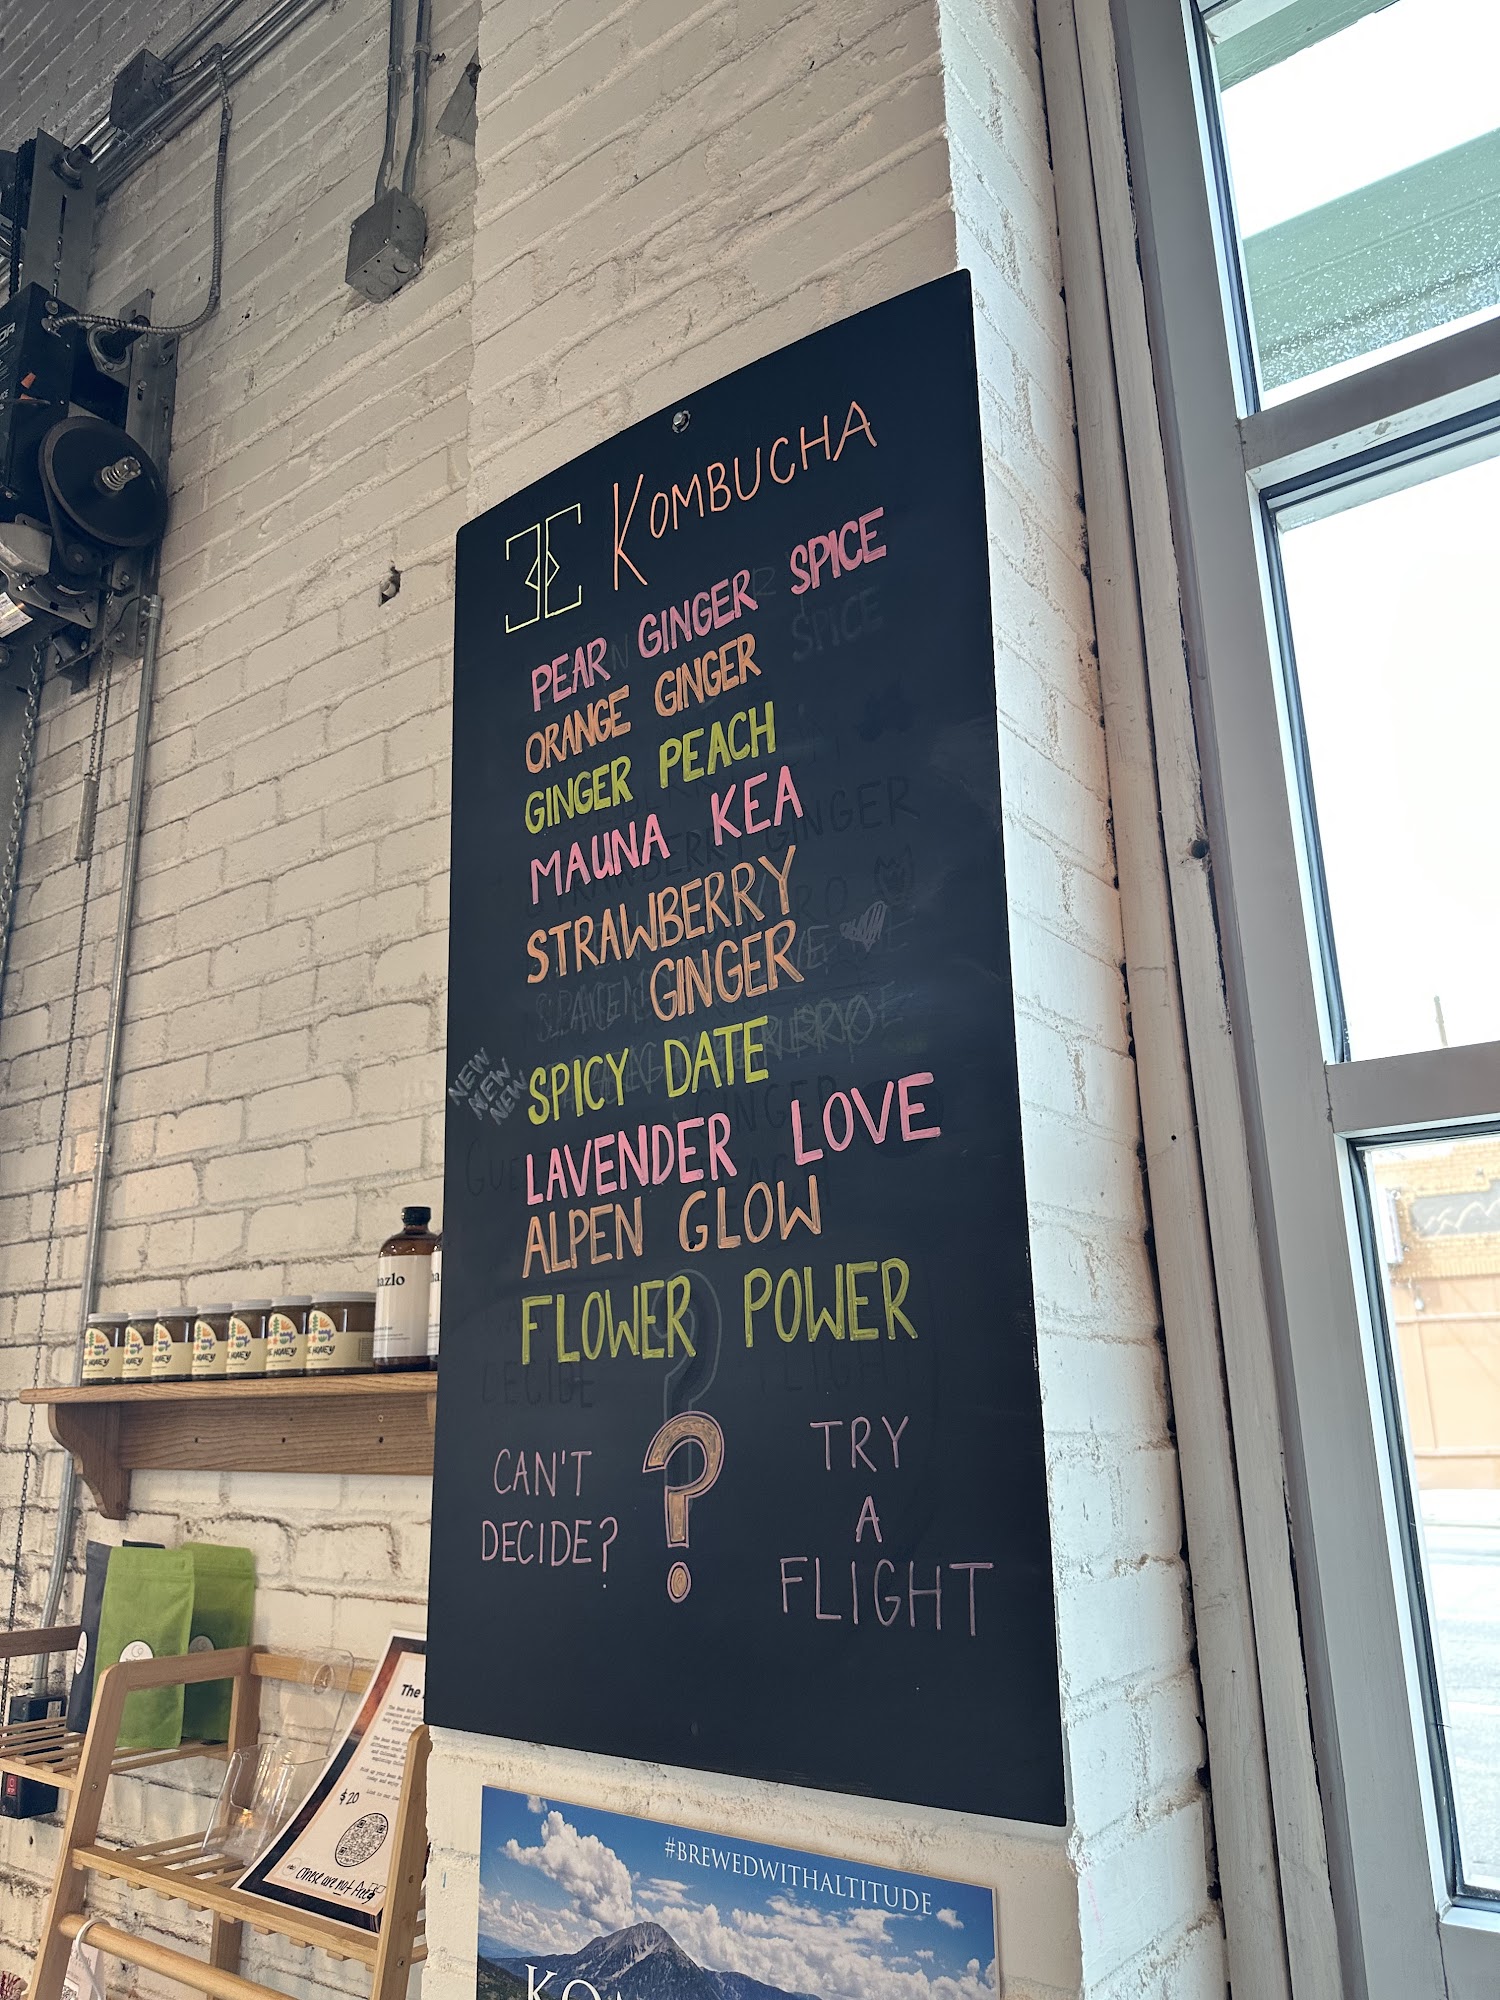 KOMBUCHA
PEAR GINGER SPICE
ORANGE GINGER
GINGER PEACH
MAUNA KEA
STRAWBERRY
GINGER
NEW
NEW
NEW
SPICY DATE
LAVENDER LOVE
ALPEN GLOW
FLOWER POWER
CAN'T
DECIDE?
?
TRY
A
FLIGHT
azlo
HONEY
The
$20
these are not free
#BREWEDWITHALTITUDE